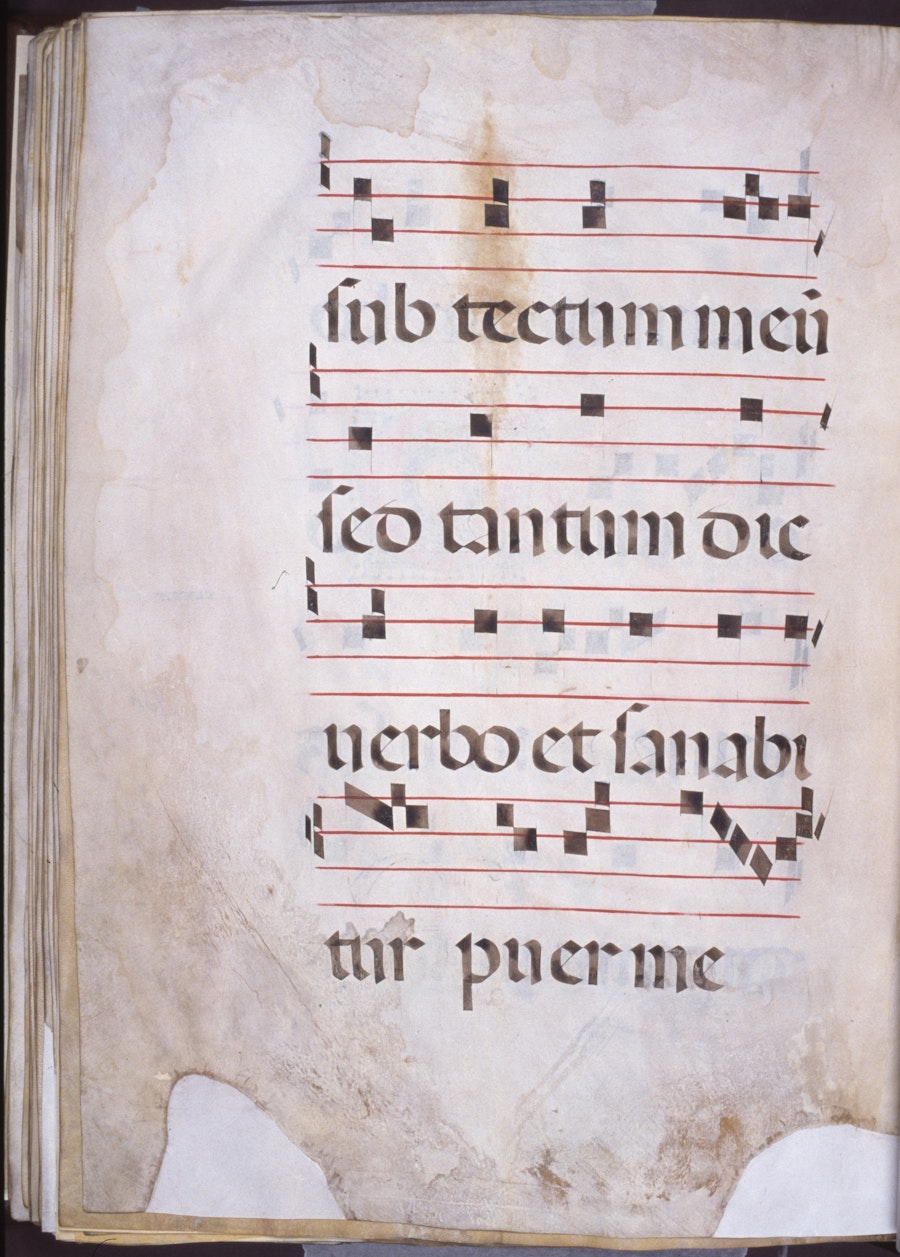 sub tectum meū
sed tantum dic
uerbo et sanabi
tur puer me